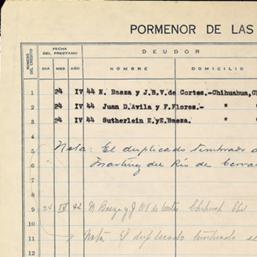 PORMENOR DE LAS
NUMERO DEL CREDITO FECHA DEL PRESTAMO DEUDOR
DIA MES AÑO NOMBRE DOMICILIO
1 24 IV 44 E. Baeza y J.B.V. de Cortes.-Chihuahua, C
2 24 IV 44 Juan D. Avila y F. Flores.- "
3 24 IV 44 Sutherlein E. y E. Baeza. "
5 Nota: El duplicado timbrado
6 Martinez del Rio de
9 24 IV 42 Baeza y J Chihuah Chi
11 Nota El duplicado timbrado